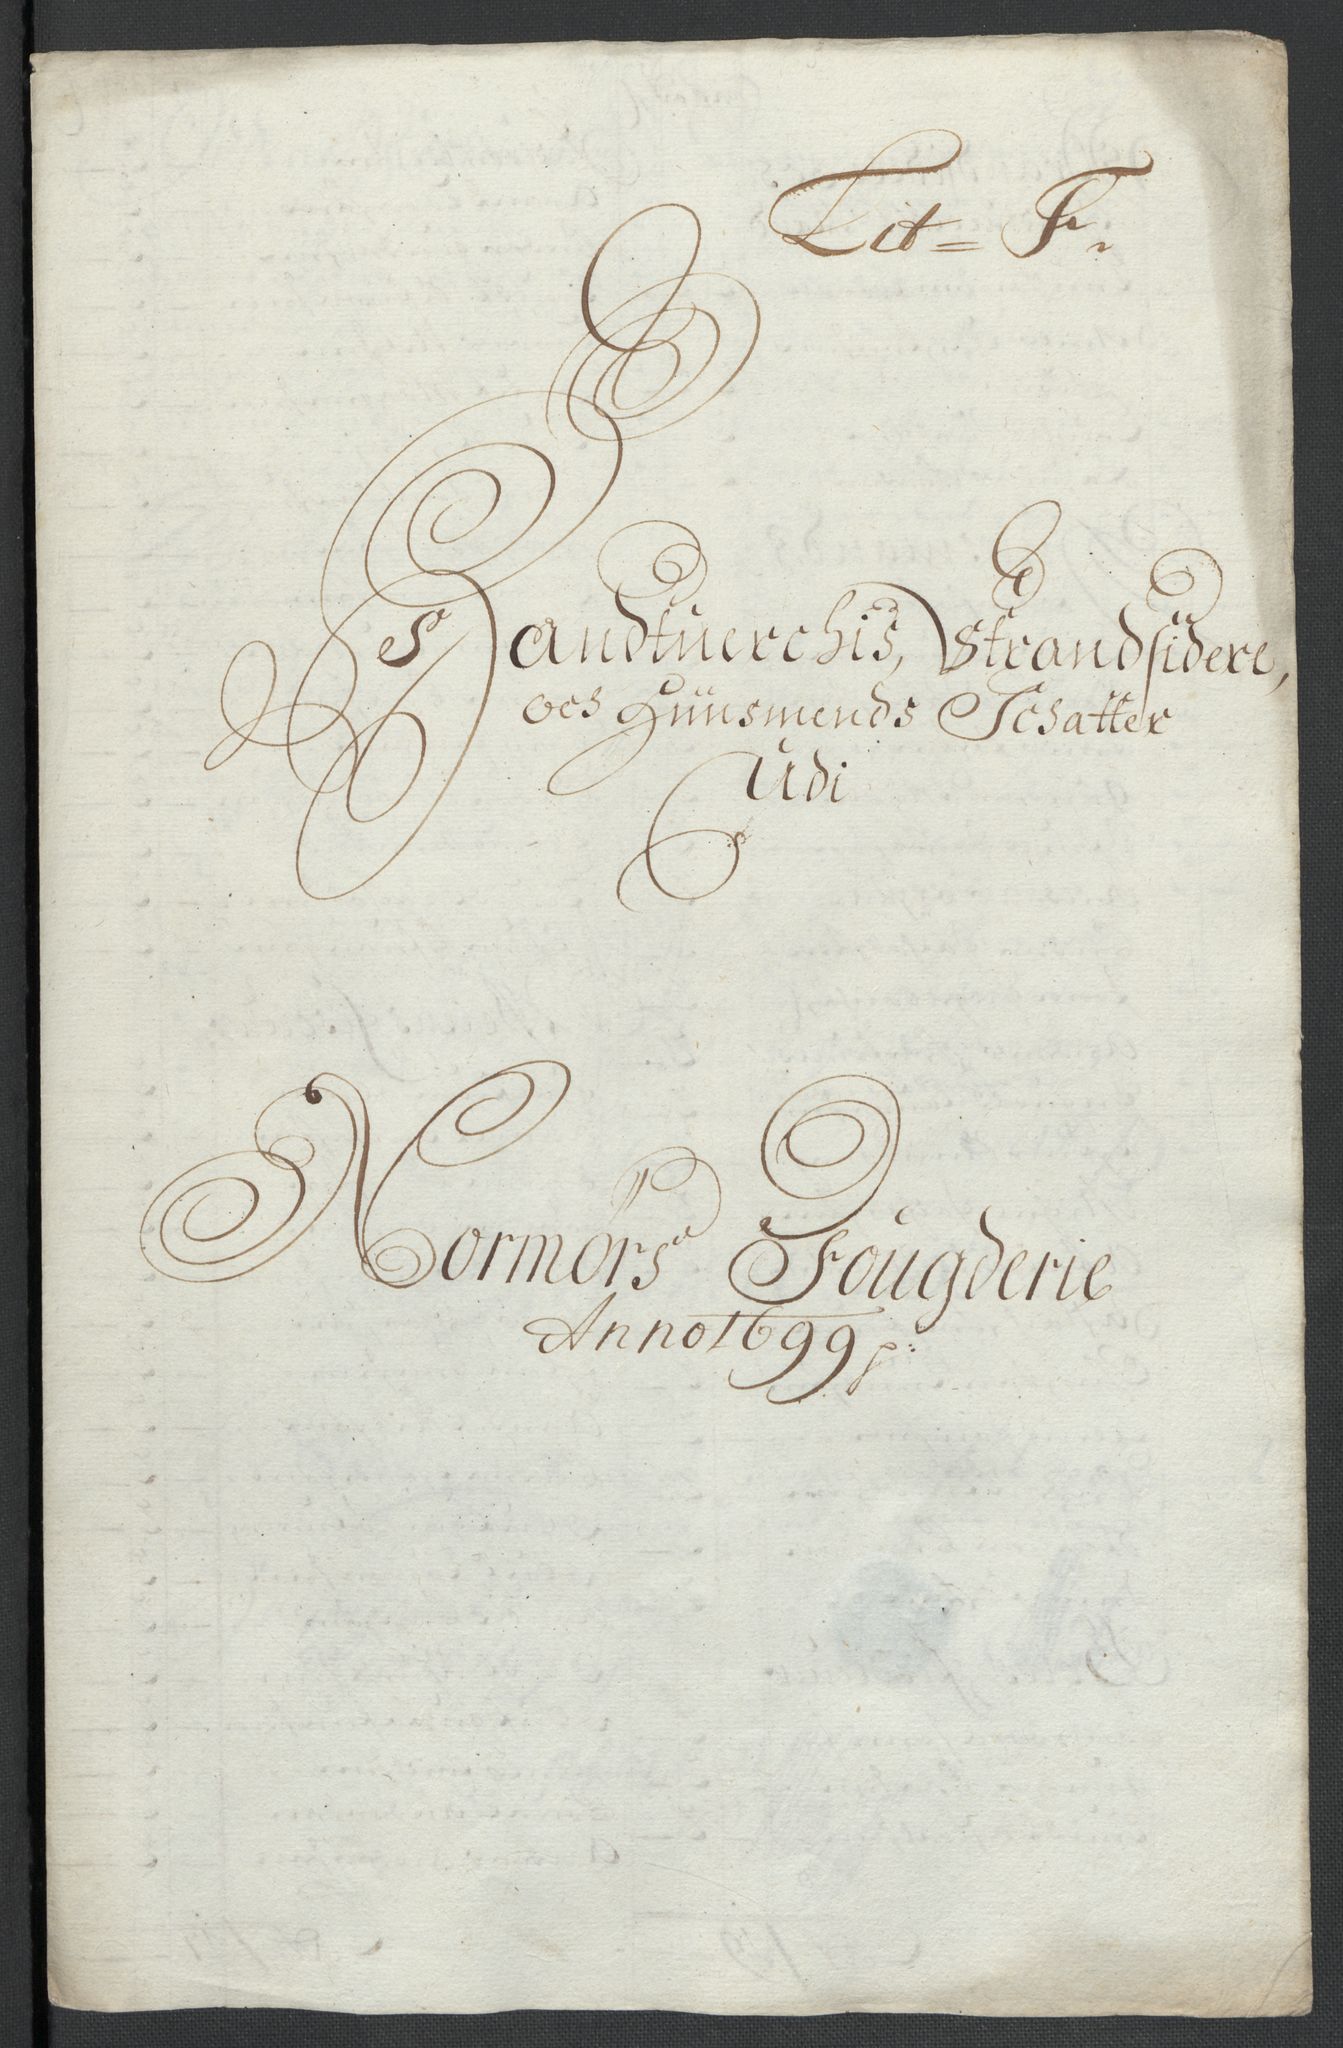 Lit= F.
Handtuerchis, Strandsidere,
och Huusmends Schatter
Udi
Normørs Fougderie
Anno 1699 p: